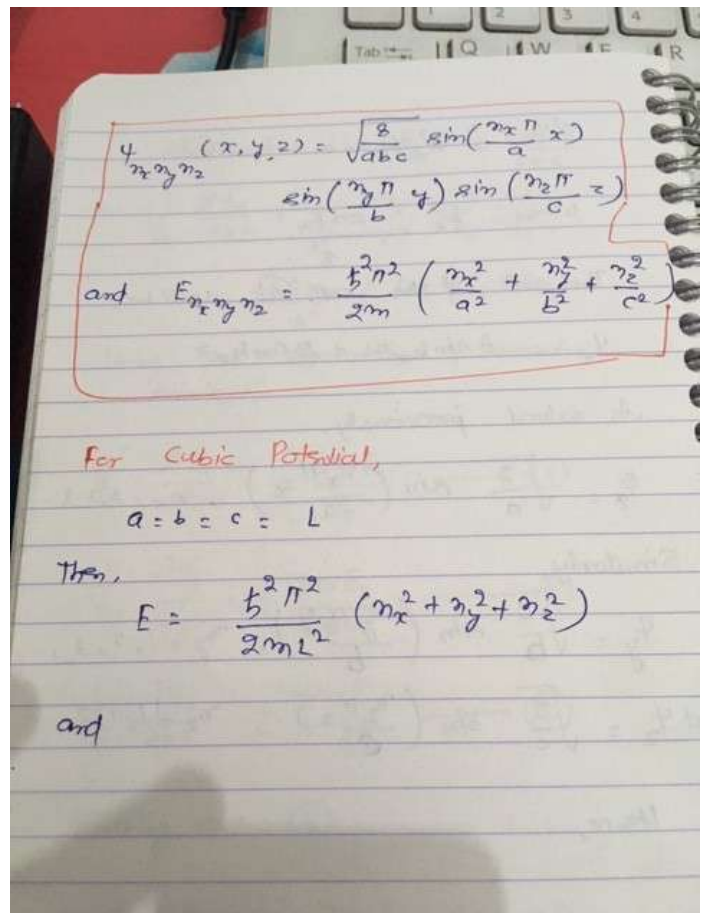 1 2 3 4
Tab Q W E R
ψ_{n_x n_y n_z} (x, y, z) = √(8/abc) sin(n_x π/a x)
sin(n_y π/b y) sin(n_z π/c z)
and E_{n_x n_y n_z} = ħ²π²/2m (n_x²/a² + n_y²/b² + n_z²/c²)
For Cubic Potential,
a = b = c = L
Then,
E = ħ²π²/2mL² (n_x² + n_y² + n_z²)
and